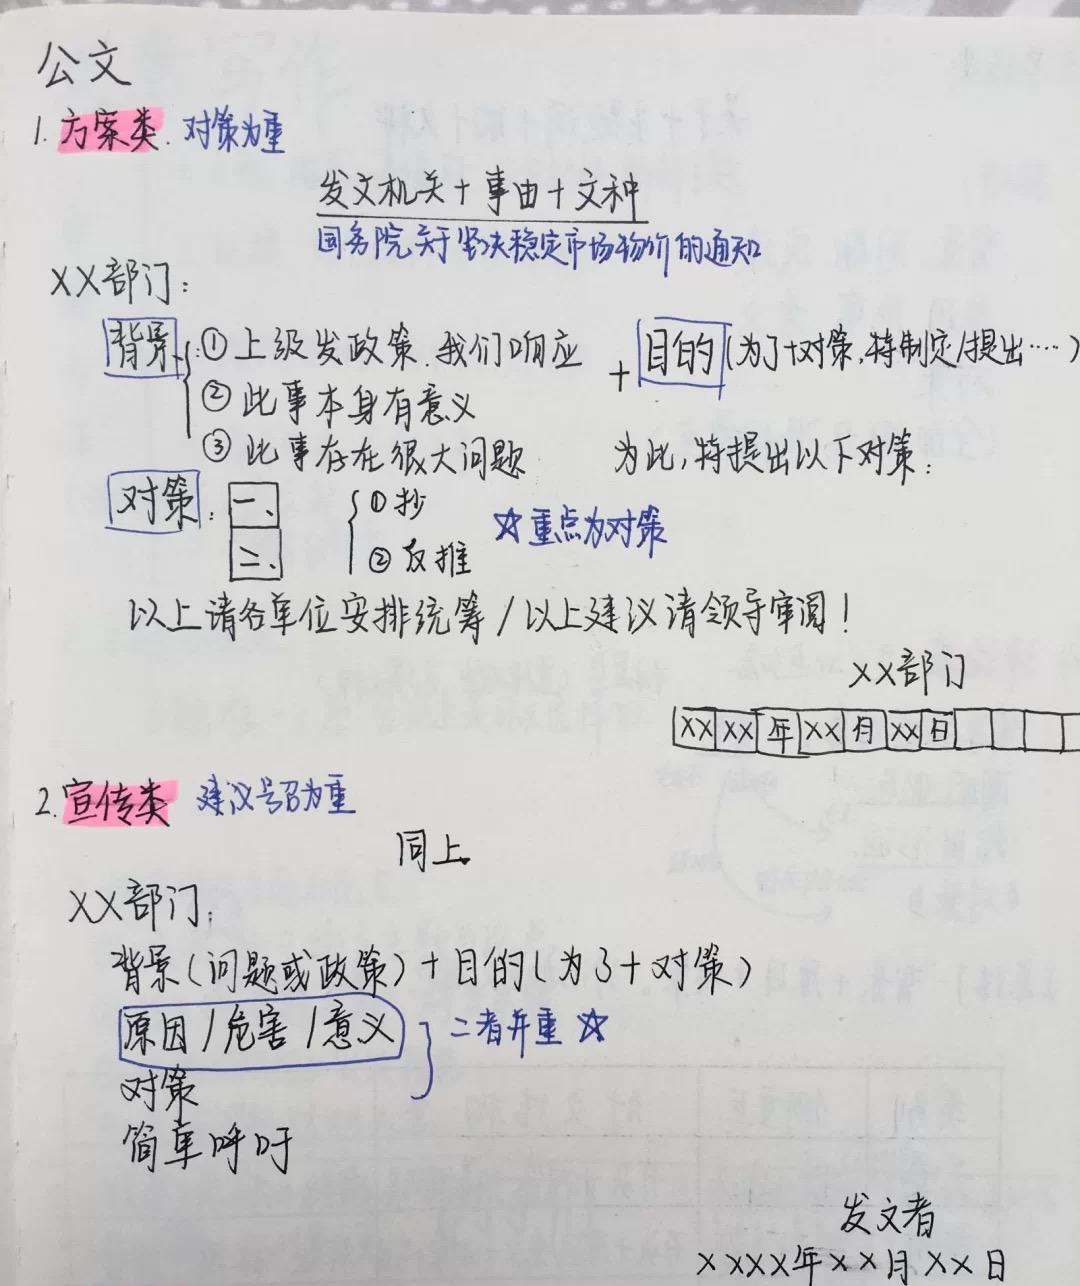 公文
1. 方案类. 对策为重
发文机关+事由+文种
国务院关于坚决稳定市场物价的通知
XX部门:
背景: ①上级发政策.我们响应 + 目的(为了+对策,特制定/提出……)
②此事本身有意义
③此事存在很大问题 为此,特提出以下对策:
对策: 一、 ①抄
二、 ②反推 ☆重点为对策
以上请各单位安排统筹/以上建议请领导审阅!
XX部门
XX XX 年 XX 月 XX 日
2. 宣传类 建议号召为重
同上.
XX部门:
背景(问题或政策)+目的(为了+对策)
原因/危害/意义 二者并重☆
对策
简单呼吁
发文者
XXXX年XX月XX日